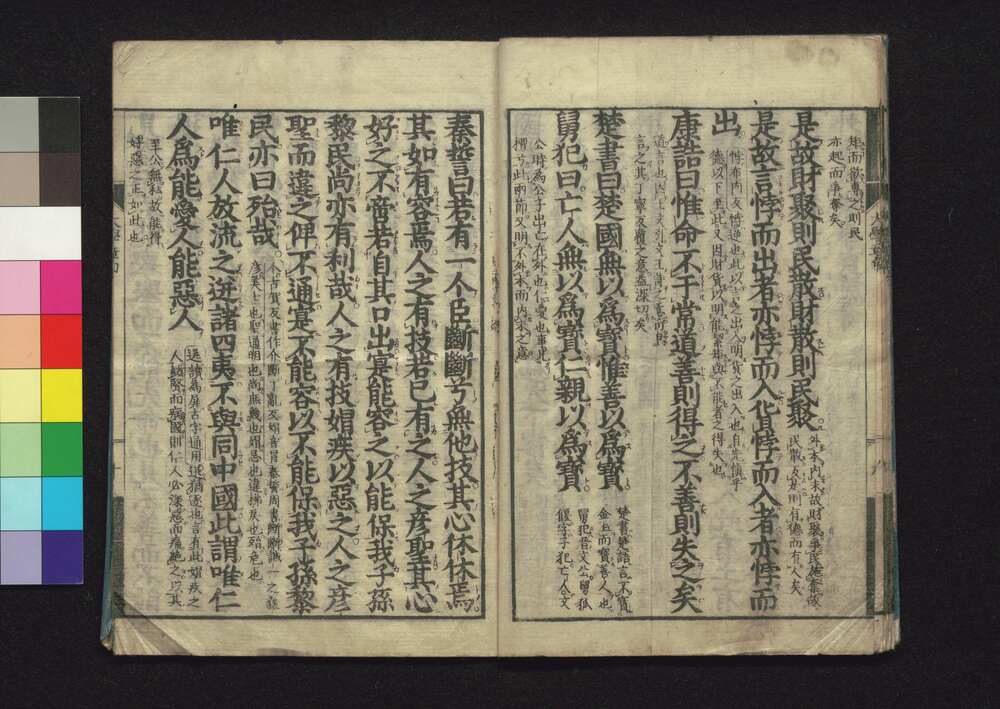 矩而欲專之則民
亦起而爭奪矣
是故財聚則民散財散則民聚
外本内末故財聚爭民施奪故
民散反是則有德而有人矣
是故言悖而出者亦悖而入貨悖而入者亦悖而
出
悖布内反 悖逆也此以言之出入明貨之出入也自先慎乎
德以下至此又因財貨以明能絜矩與不能者之得失也
康誥曰惟命不于常道善則得之不善則失之矣
道言也因上文引文王詩之意而申
言之其丁寧反覆之意益深切矣
楚書曰楚國無以爲寶惟善以爲寶
楚書楚語言不寶
金玉而寶善人也
舅犯曰亡人無以爲寶仁親以爲寶
舅犯晉文公舅狐
偃字子犯亡人文
公時爲公子出亡在外也仁愛也事見
檀弓此兩節又明不外本而内末之意
秦誓曰若有一人臣斷斷兮無他技其心休休焉
其如有容焉人之有技若己有之人之彥聖其心
好之不啻若自其口出寔能容之以能保我子孫
黎民尚亦有利哉人之有技媢疾以惡之人之彥
聖而違之俾不通寔不能容以不能保我子孫黎
民亦曰殆哉
个古賀反書作介斷丁亂反媢音冒 秦誓周書斷斷誠一之貌
彥美士也聖通明也尚庶幾也媢忌也違拂戾也殆危也
唯仁人放流之迸諸四夷不與同中國此謂唯仁
人爲能愛人能惡人
迸讀爲屏古字通用 迸猶逐也言有此媢疾之
人妨賢而病國則仁人必深惡而痛絶之以其
至公無私故能得
好惡之正如此也